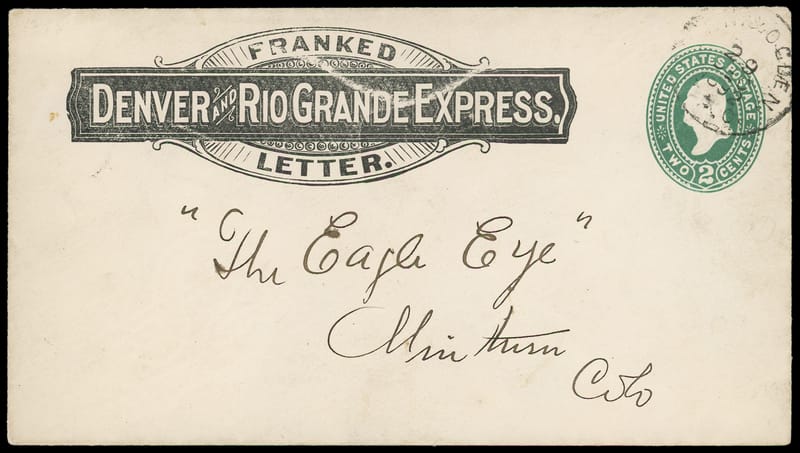 FRANKED
DENVER AND RIO GRANDE EXPRESS.
LETTER.
UNITED STATES POSTAGE
TWO 2 CENTS
OGDEN
29
"The Eagle Eye"
Minturn
Colo